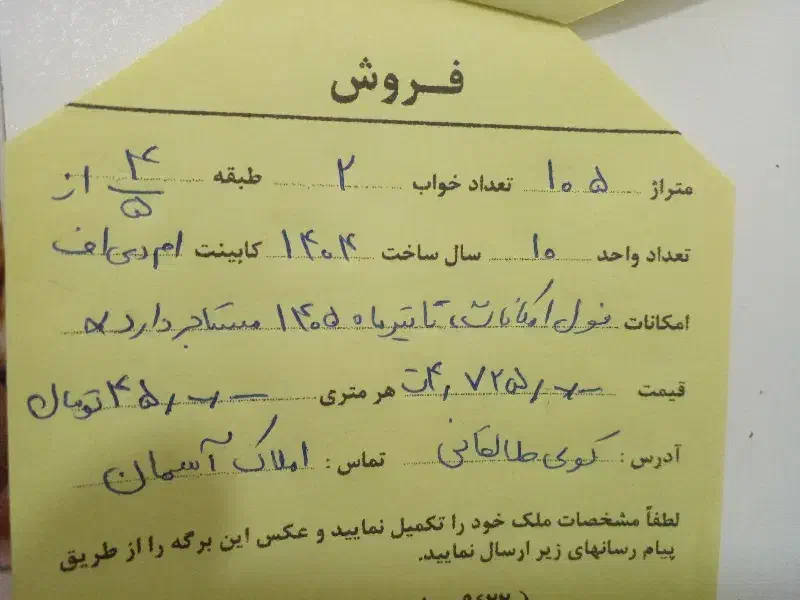 فروش
متراژ ۱۰۵ تعداد خواب ۲ طبقه ۴ از ۵
تعداد واحد ۱۰ سال ساخت ۱۴۰۴ کابینت ام دی اف
امکانات فول امکانات، تا تیرماه ۱۴۰۵ مستاجر دارد
قیمت ۴٫۷۲۵٫۰۰۰ ت هر متری ۴۵٫۰۰۰ تومان
آدرس: کوی طالقانی تماس: املاک آسمان
لطفاً مشخصات ملک خود را تکمیل نمایید و عکس این برگه را از طریق
پیام رسانهای زیر ارسال نمایید.